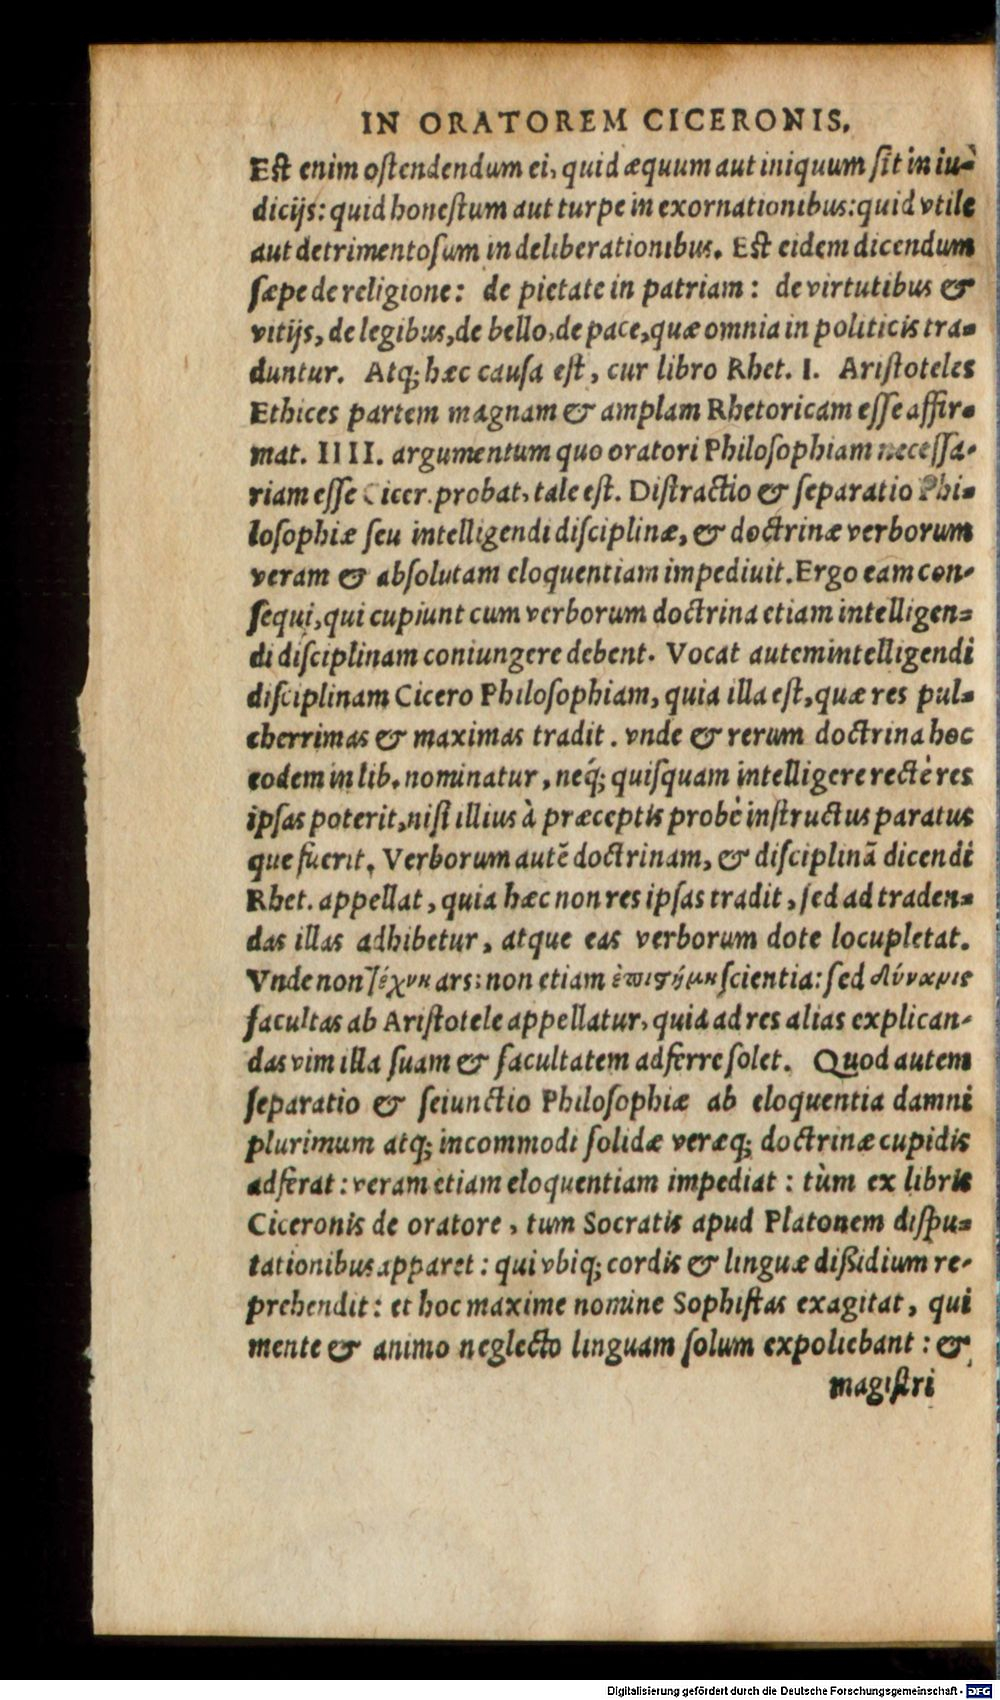 IN ORATOREM CICERONIS.
Est enim ostendendum ei, quid æquum aut iniquum sit in iu-
dicijs: quid honestum aut turpe in exornationibus: quid vtile
aut detrimentosum in deliberationibus. Est eidem dicendum
sæpe de religione: de pietate in patriam: de virtutibus &
vitijs, de legibus, de bello, de pace, quæ omnia in politicis tra-
duntur. Atq; hæc causa est, cur libro Rhet. I. Aristoteles
Ethices partem magnam & amplam Rhetoricam esse affir-
mat. IIII. argumentum quo oratori Philosophiam necessa-
riam esse Cicer. probat, tale est. Distractio & separatio Phi-
losophiæ seu intelligendi disciplinæ, & doctrinæ verborum
veram & absolutam eloquentiam impediuit. Ergo eam con-
sequi, qui cupiunt cum verborum doctrina etiam intelligen-
di disciplinam coniungere debent. Vocat autem intelligendi
disciplinam Cicero Philosophiam, quia illa est, quæ res pul-
cherrimas & maximas tradit. vnde & rerum doctrina hoc
eodem in lib. nominatur, neq́; quisquam intelligere rectè res
ipsas poterit, nisi illius à præceptis probè instructus paratus
que fuerit. Verborum autē doctrinam, & disciplinā dicendi
Rhet. appellat, quia hæc non res ipsas tradit, sed ad traden-
das illas adhibetur, atque eas verborum dote locupletat.
Vnde non τέχνη ars: non etiam ἐπιστήμη scientia: sed δύναμις
facultas ab Aristotele appellatur, quia ad res alias explican-
das vim illa suam & facultatem adferre solet. Quod autem
separatio & seiunctio Philosophiæ ab eloquentia damni
plurimum atq; incommodi solidæ veræq; doctrinæ cupidis
adferat: veram etiam eloquentiam impediat: tùm ex libris
Ciceronis de oratore, tum Socratis apud Platonem dispu-
tationibus apparet: qui vbiq; cordis & linguæ dißidium re-
prehendit: et hoc maxime nomine Sophistas exagitat, qui
mente & animo neglecto linguam solum expoliebant: &
magistri
Digitalisierung gefördert durch die Deutsche Forschungsgemeinschaft - DFG